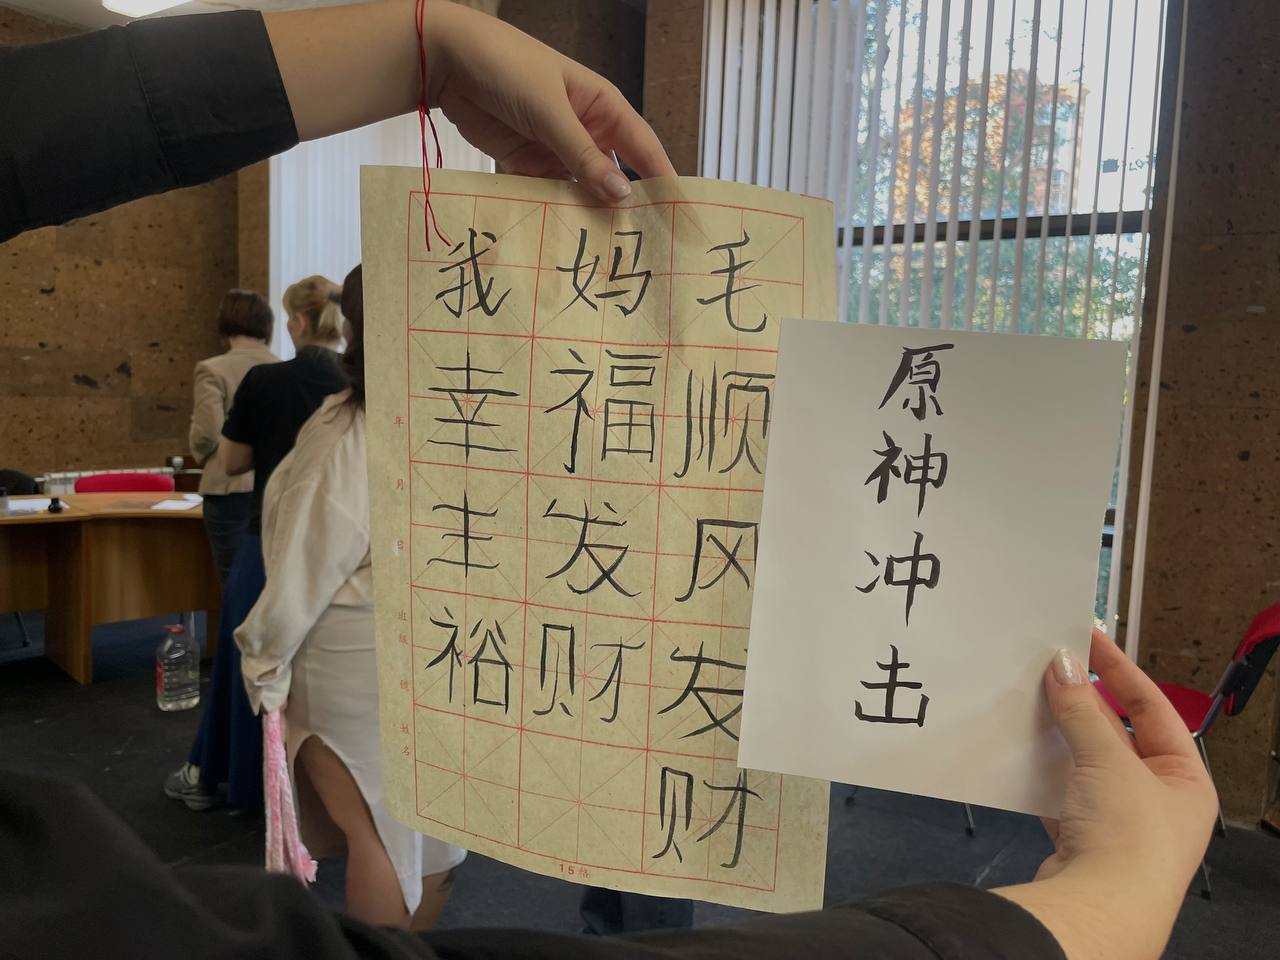 我幸主裕
妈福发财
毛顺风发财
年 月 日 班级 姓名
15格
原神冲击